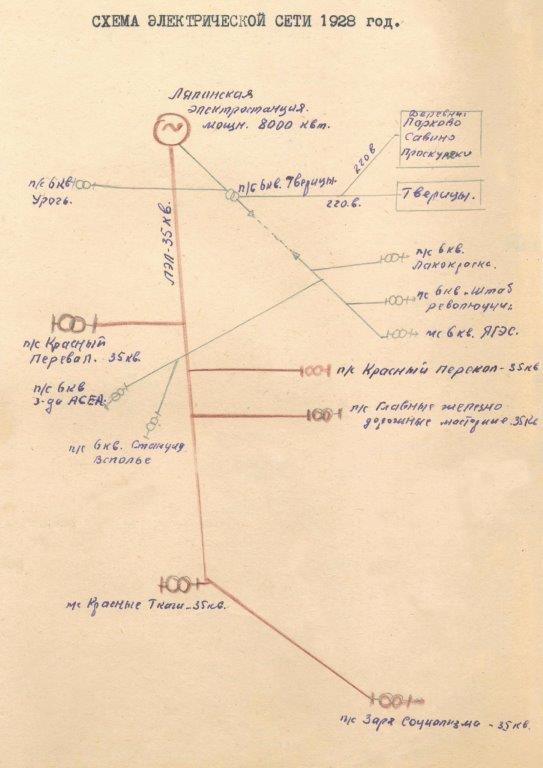 СХЕМА ЭЛЕКТРИЧЕСКОЙ СЕТИ 1928 год.
Ляпинская
электростанция.
мощн. 8000 квт.
~
Деревни:
Парково
Савино
Проскуряки
220 в
п/с 6 кв. Тверицы.
220 в.
Тверицы.
п/с 6 кв
Урочь.
ЛЭП-35 кв.
п/с 6 кв.
Лакокраска.
п/с 6 кв. "Штаб
революции"
п/с 6 кв. ЯГЭС.
п/с Красный
Перевал. 35 кв.
п/с Красный Перекоп-35 кв
п/с 6 кв
з-да АСЕА.
п/с Главные железно
дорожные мастерские-35 кв
п/с 6 кв. Станция
Всполье
п/с Красные Ткачи-35 кв.
п/с Заря Социализма-35 кв.